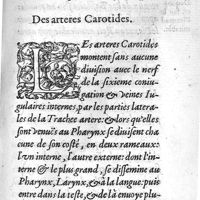 Des arteres Carotides.
LEs arteres Carotides
montent sans aucune
diuision auec le nerf
de la sixieme coniu-
gation & veines Iu-
gulaires internes, par les parties latera-
les de la Trachee artere: & lors qu'elles
sont venuës au Pharynx se diuisent cha-
cune de son costé, en deux rameaux:
l'vn interne, l'autre externe: dont l'in-
terne & le plus grand, se dissemine au
Pharynx, Larynx, & à la langue: puis
entre dans la teste, & de là enuoye plu-